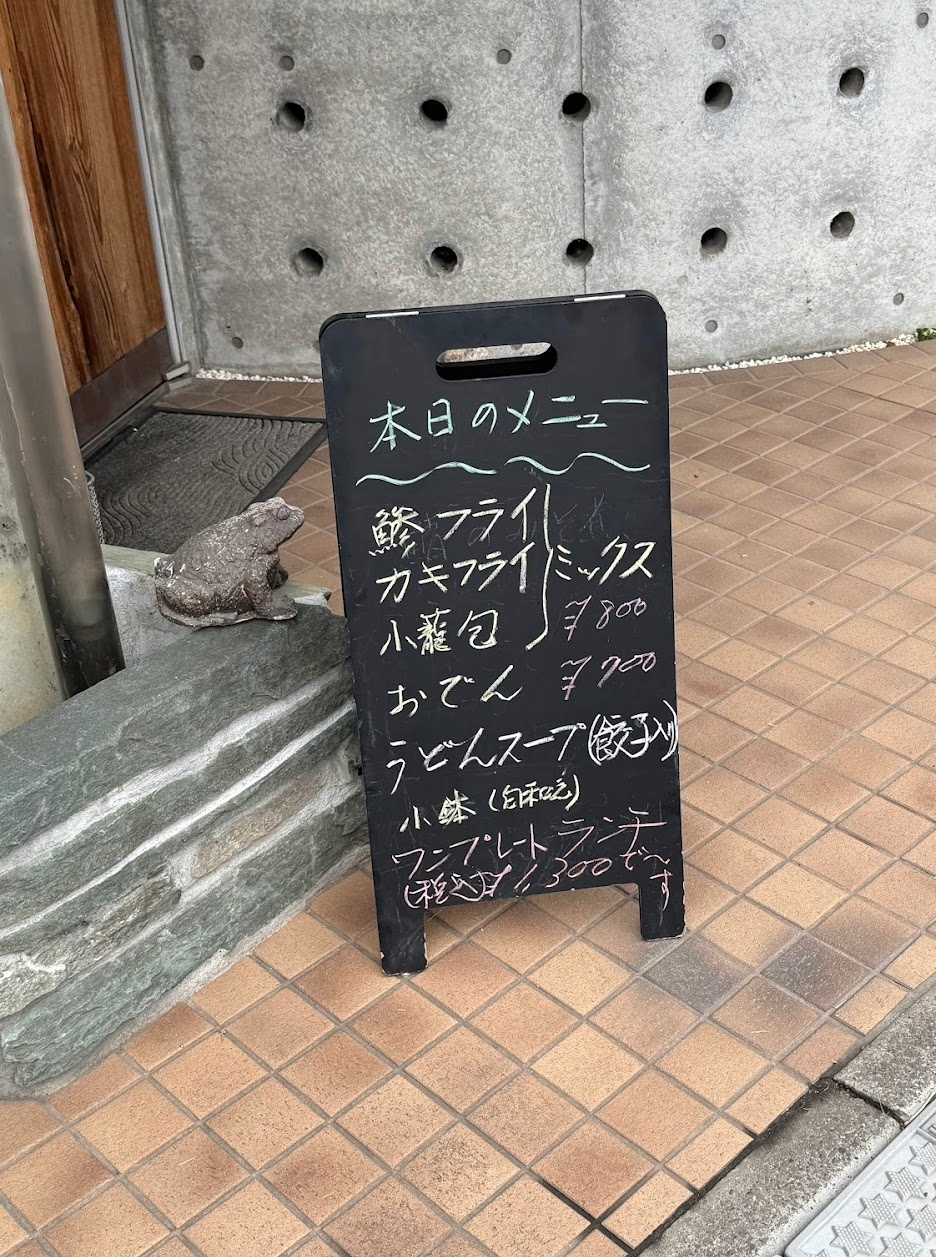 本日のメニュー
鯵フライ
カキフライ ミックス
小籠包 ¥800
おでん ¥700
うどんスープ(餃子入り)
小鉢(白和え)
ワンプレートランチ
(税込)¥1,300で〜す